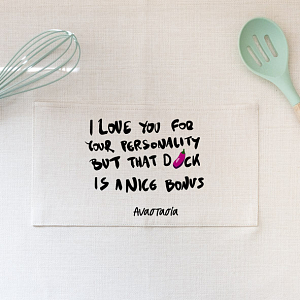 I LOVE YOU FOR
YOUR PERSONALITY
BUT THAT D🍆CK
IS A NICE BONUS